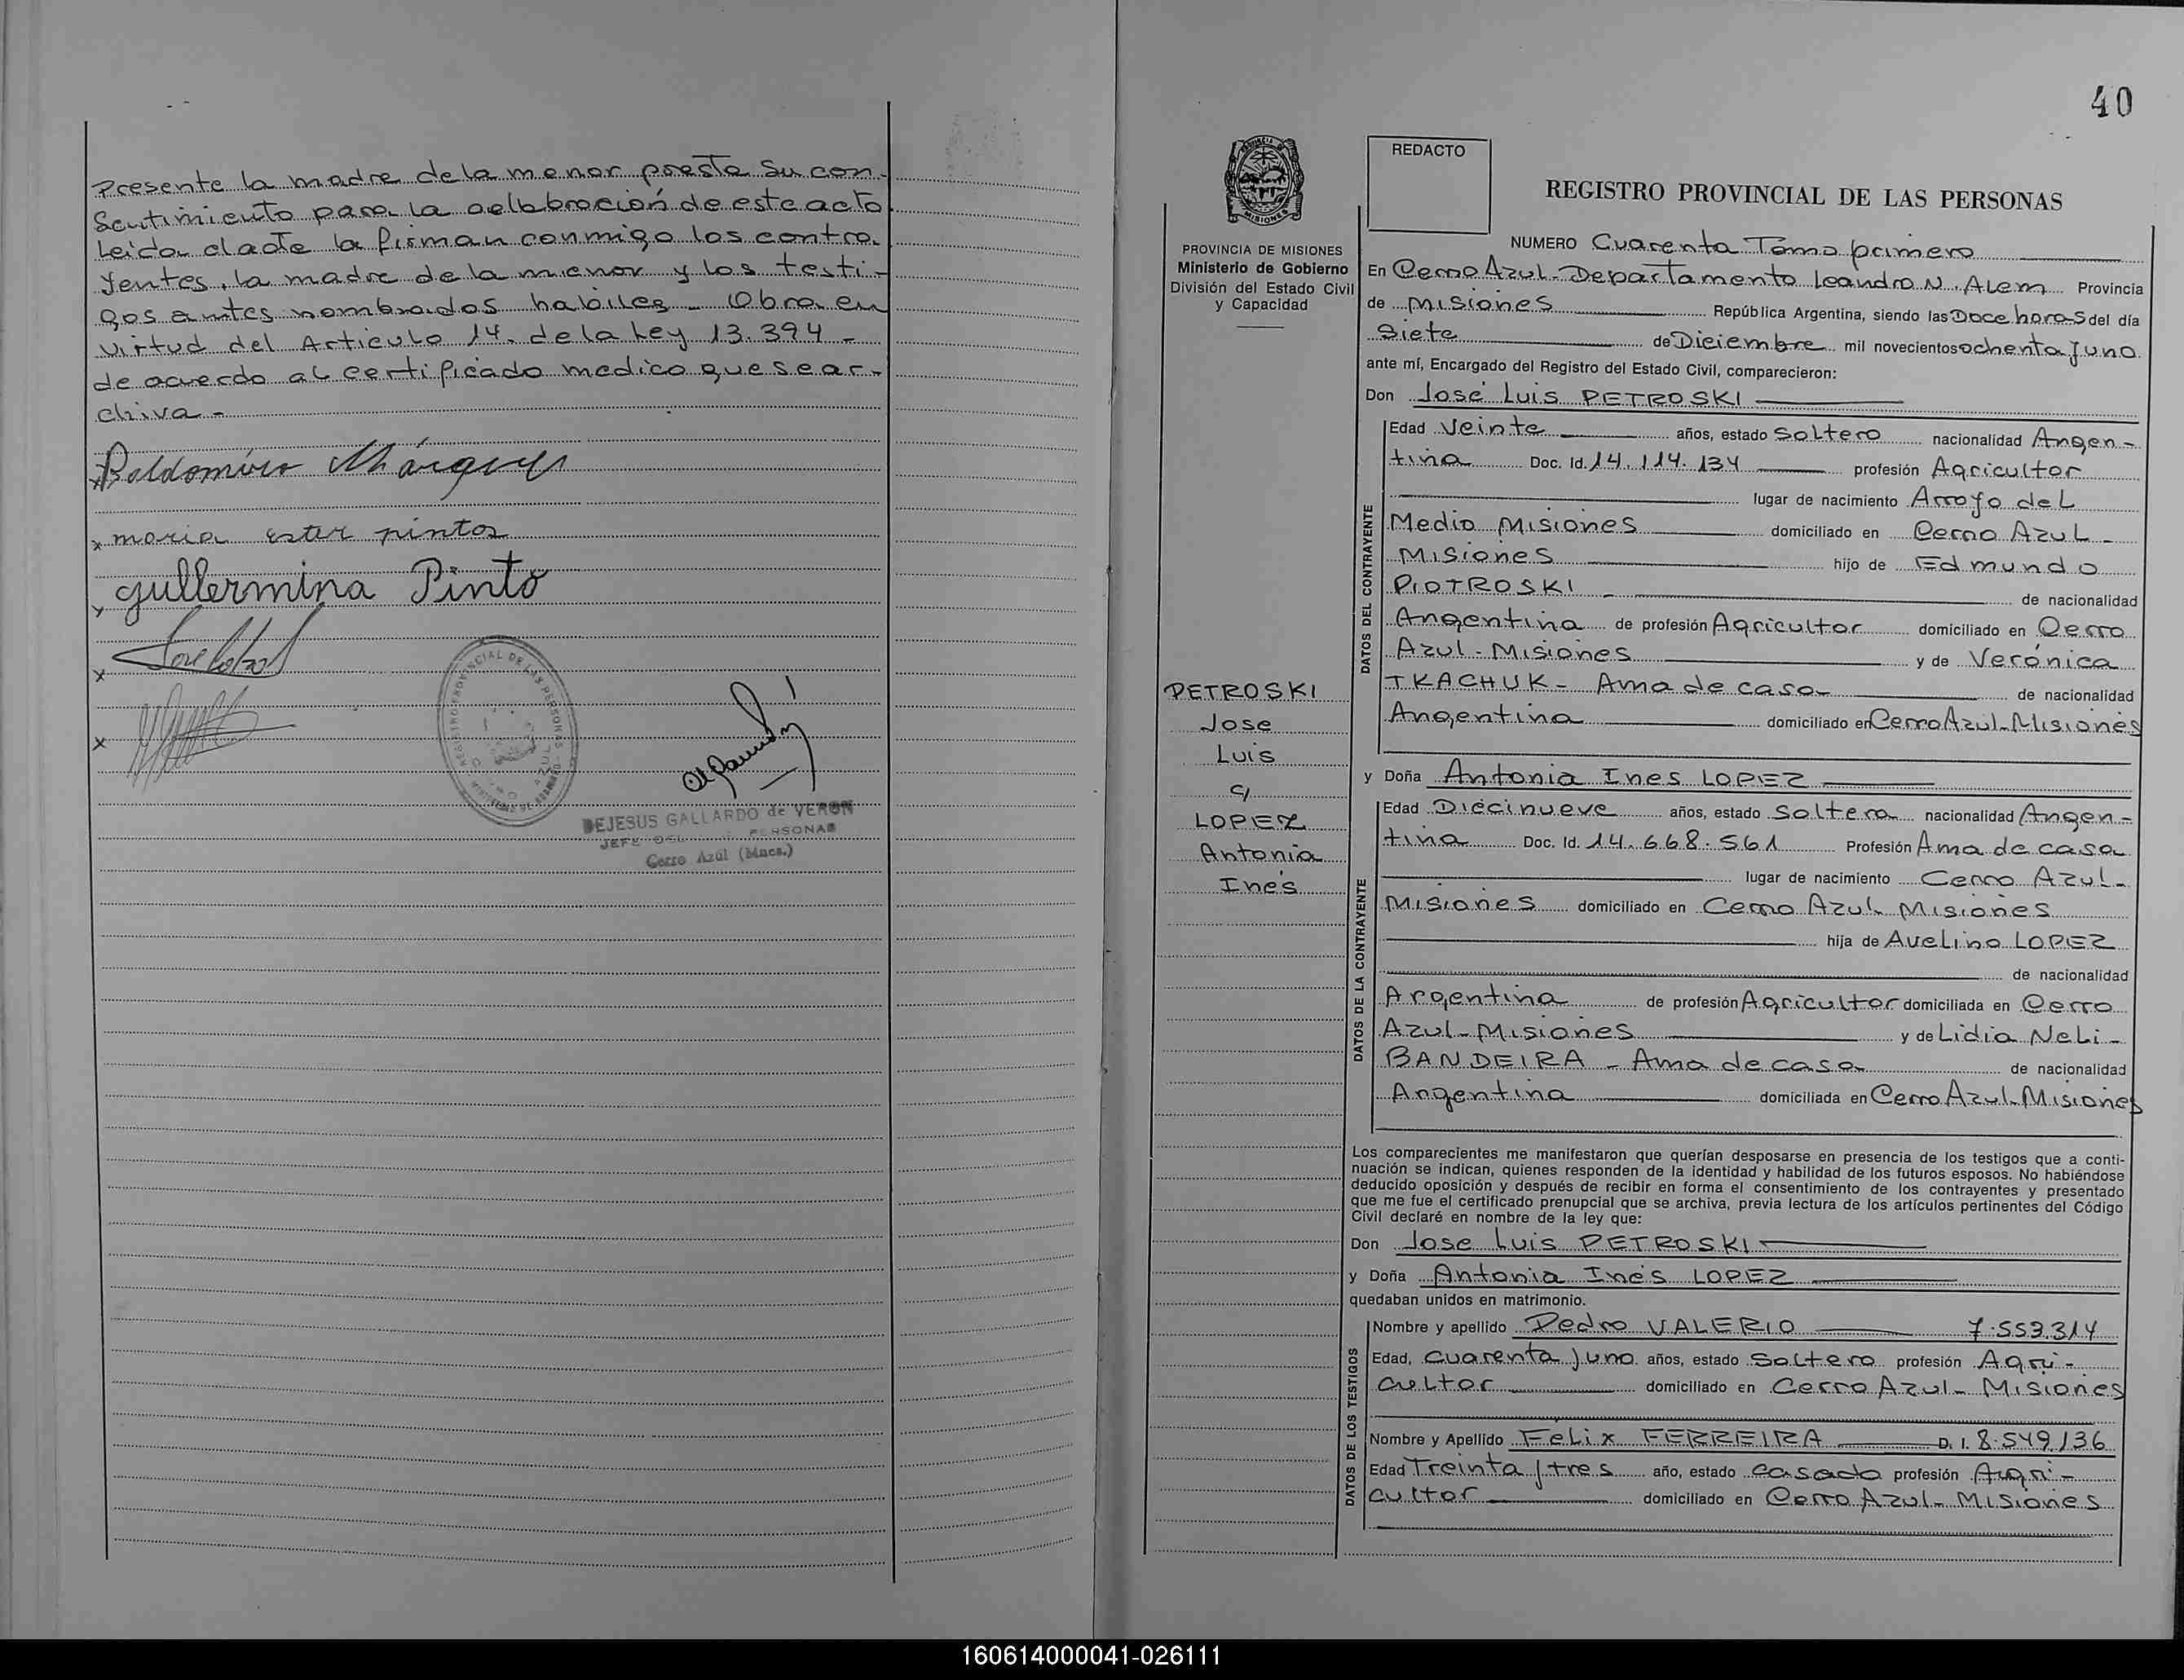 Presente la madre de la menor presta su con-
sentimiento para la celebración de este acto
Leida el acta la firman conmigo los contra-
yentes, la madre de la menor y los testi-
gos antes nombrados habiles - Obra en
virtud del Articulo 14. de la Ley 13.394 -
de acuerdo al certificado medico que se ar-
chiva -
x Baldomiro Márquez
x maria ester pintos
x gullermina Pinto
x
x
REGISTRO PROVINCIAL DE LAS PERSONAS
DEJESUS GALLARDO de VERON
JEFE DEL PERSONAS
Cerro Azúl (Mnes.)
40
REDACTO
REGISTRO PROVINCIAL DE LAS PERSONAS
PROVINCIA DE MISIONES
Ministerio de Gobierno
División del Estado Civil
y Capacidad
NUMERO Cuarenta Tomo primero
En Cerro Azul-Departamento Leandro N. Alem Provincia
de Misiones República Argentina, siendo las Doce horas del día
Siete de Diciembre mil novecientos ochenta y uno
ante mí, Encargado del Registro del Estado Civil, comparecieron:
Don José Luis PETROSKI
DATOS DEL CONTRAYENTE
Edad Veinte años, estado Soltero nacionalidad Argen-
tina Doc. Id. 14.114.134 profesión Agricultor
lugar de nacimiento Arroyo del
Medio Misiones domiciliado en Cerro Azul -
Misiones hijo de Edmundo
PIOTROSKI de nacionalidad
Argentina de profesión Agricultor domiciliado en Cerro
Azul - Misiones y de Verónica
TKACHUK - Ama de casa de nacionalidad
Argentina domiciliado en Cerro Azul-Misiones
PETROSKI
Jose
Luis
c/
LOPEZ
Antonia
Inés
y Doña Antonia Ines LOPEZ
DATOS DE LA CONTRAYENTE
Edad Diecinueve años, estado Soltera nacionalidad Argen-
tina Doc. Id. 14.668.561 Profesión Ama de casa
lugar de nacimiento Cerro Azul-
Misiones domiciliado en Cerro Azul-Misiones
hija de Avelino LOPEZ
de nacionalidad
Argentina de profesión Agricultor domiciliada en Cerro
Azul-Misiones y de Lidia Neli-
BANDEIRA - Ama de casa de nacionalidad
Argentina domiciliada en Cerro Azul-Misiones
Los comparecientes me manifestaron que querían desposarse en presencia de los testigos que a conti-
nuación se indican, quienes responden de la identidad y habilidad de los futuros esposos. No habiéndose
deducido oposición y después de recibir en forma el consentimiento de los contrayentes y presentado
que me fue el certificado prenupcial que se archiva, previa lectura de los artículos pertinentes del Código
Civil declaré en nombre de la ley que:
Don Jose Luis PETROSKI
y Doña Antonia Inés LOPEZ
quedaban unidos en matrimonio.
DATOS DE LOS TESTIGOS
Nombre y apellido Pedro VALERIO 7.553.314
Edad, cuarenta y uno años, estado Soltero profesión Agri-
cultor domiciliado en Cerro Azul- Misiones
Nombre y Apellido Felix FERREIRA D. I. 8.549.136
Edad Treinta y tres año, estado casado profesión Agri-
cultor domiciliado en Cerro Azul- Misiones
160614000041-026111